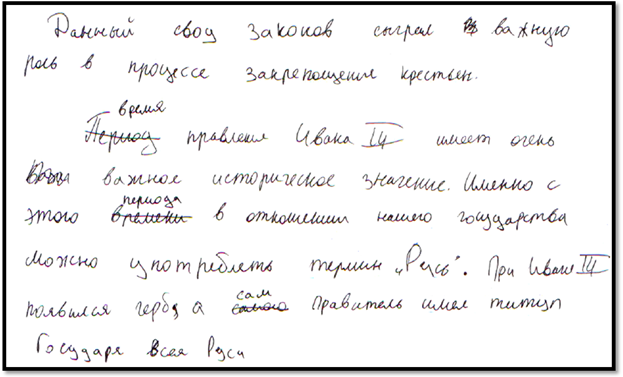 Данный свод законов сыграл важную
роль в процессе закрепощения крестьян.
время
Период правления Ивана III имеет очень
важное историческое значение. Именно с
периода
этого времени в отношении нашего государства
можно употреблять термин „Русь“. При Иване III
сам
появился герб, а самого правитель имел титул
Государя всея Руси